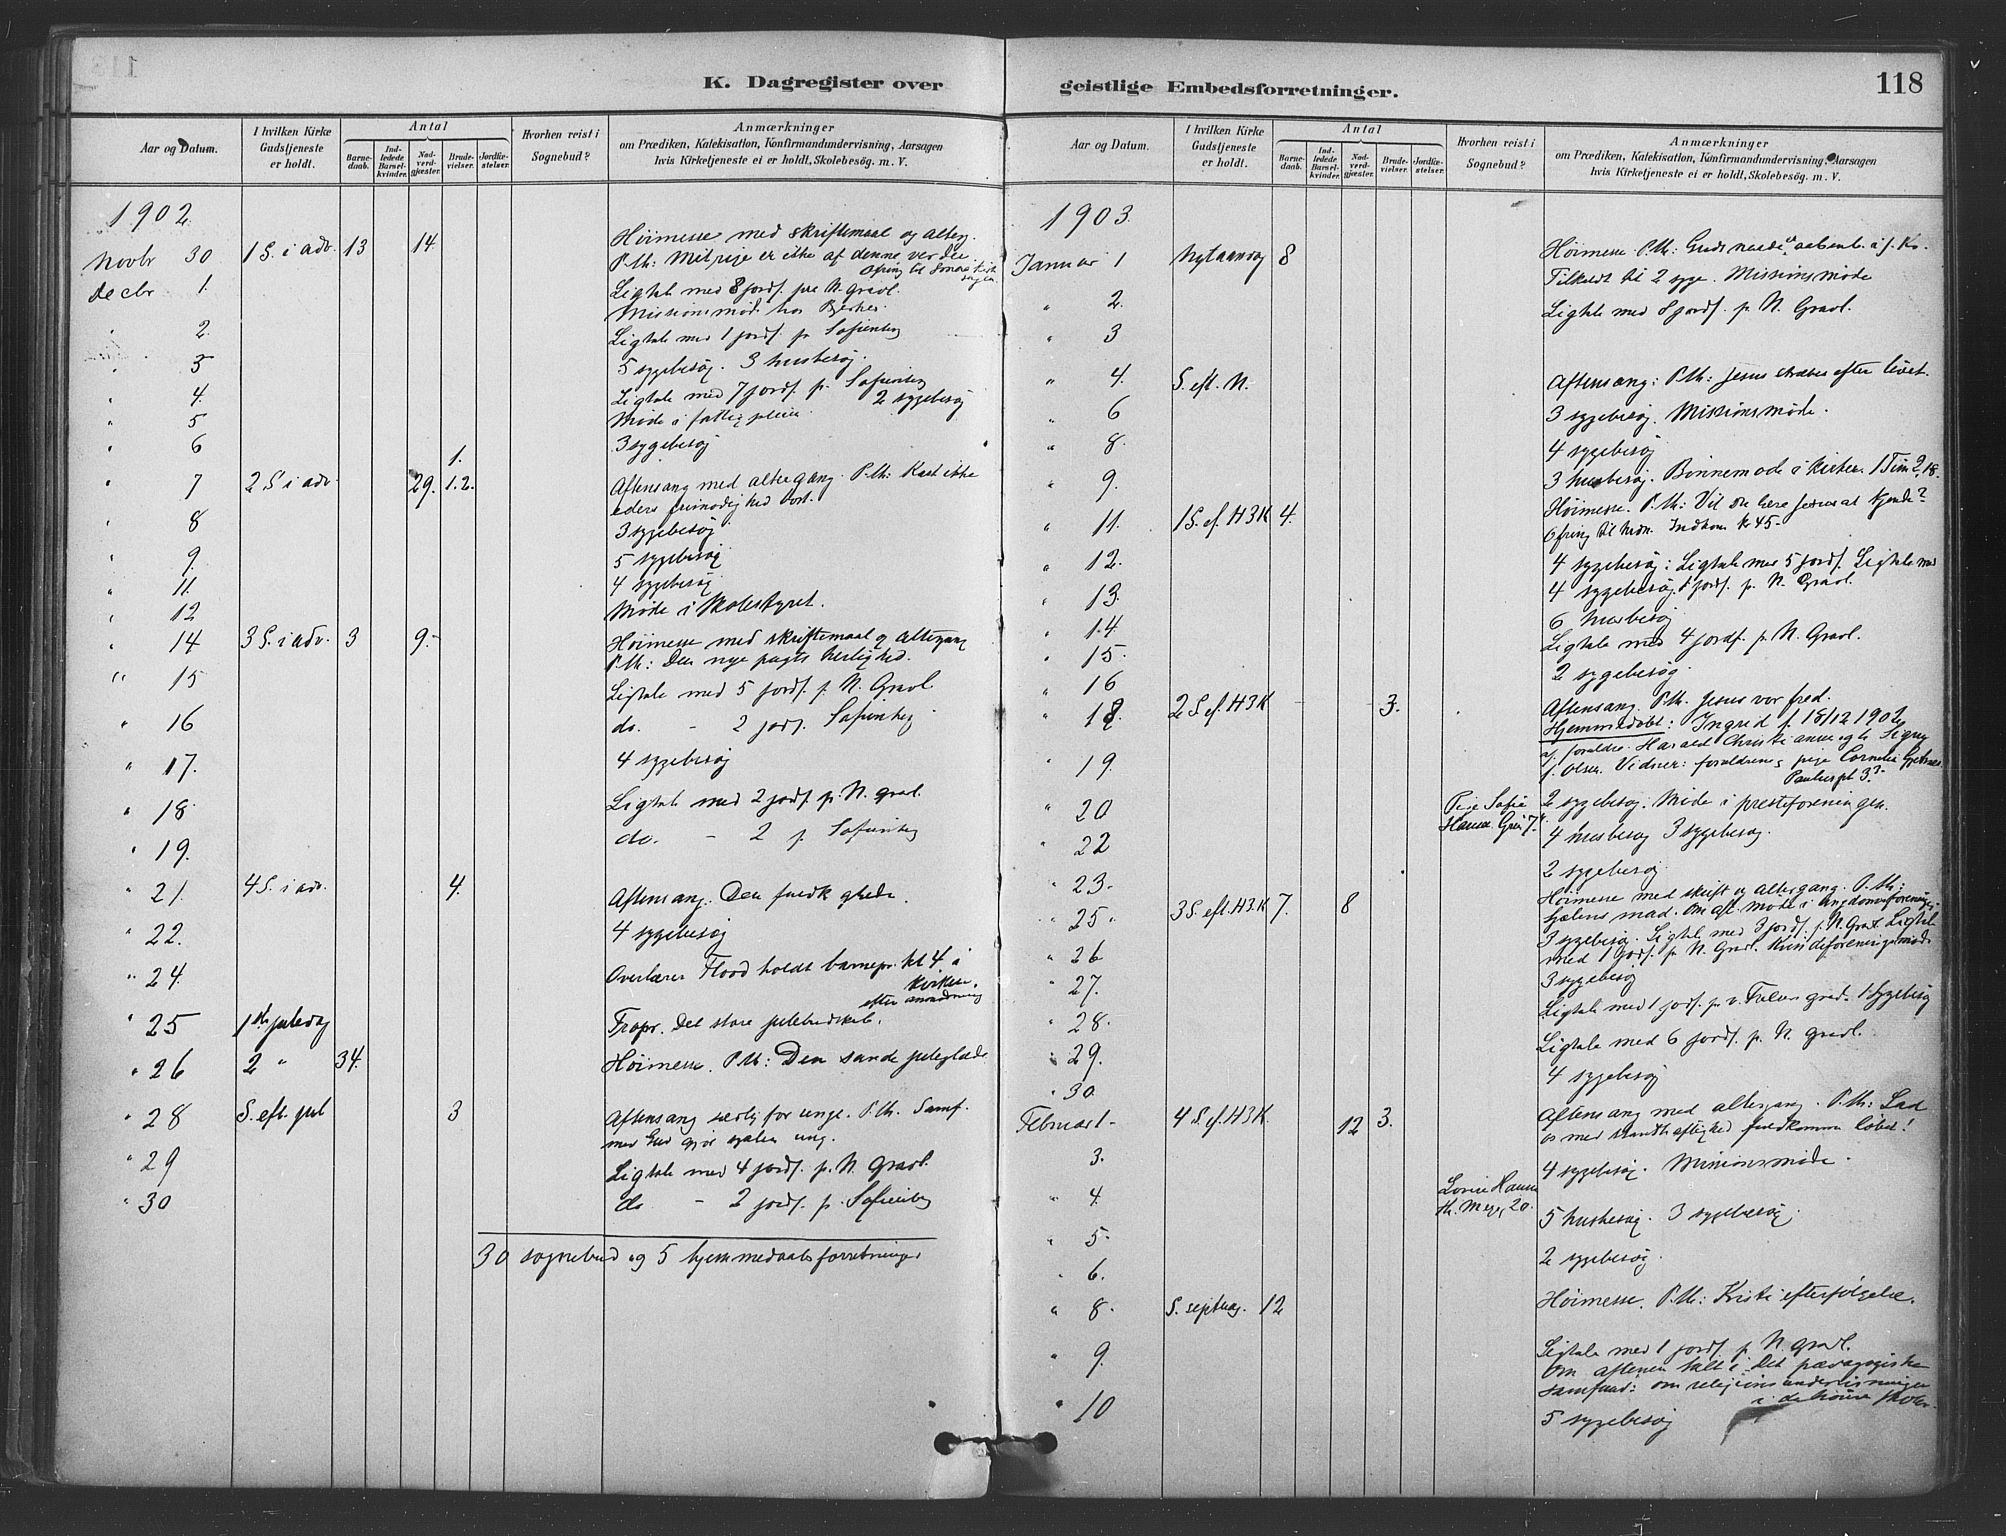 K. Dagregister over
Aar og Datum.
I hvilken Kirke Gudstjeneste er holdt.
Antal
Barnedaab.
Indledede Barselkvinder.
Nadverdgjæster.
Brudevielser.
Jordfæstelser.
Hvorhen reist i Sognebud?
Anmærkninger
om Prædiken, Katekisation, Konfirmandundervisning, Aarsagen
hvis Kirketjeneste ei er holdt, Skolebesøg. m. V.
1902
Novbr 30 1 S. i adv. 13 14 Høimesse med skriftemaal og alterg.
P. th: Mit rige er ikke af denne verden
Decbr 1. Ligtale med 8 jordf. paa N. Gravl.
Missionsmøde hos
" 2. Ligtale med 1 jordf. p. Sofienberg
" 3 5 sygebesøg. 3 husbesøg.
" 4. Ligtale med 7 jordf. p. Sofienberg
2 sygebesøg
" 5 Møde i fattigpleien.
" 6 1. 3 sygebesøg
" 7 2 S. i adv. 29. 1.2. Aftensang med altergang. P. th: Kast ikke
eders frimodighed bort.
" 8 3 sygebesøg
" 9. 5 sygebesøg
" 11. 4 sygebesøg
" 12 Møde i skolestyret.
" 14 3 S. i adv. 3 9. Høimesse med skriftemaal og altergang
P. th: Den nye pagts herlighed.
" 15 Ligtale med 5 jordf. p. N. Gravl.
" 16 do. - 2 jordf. Sofienberg
" 17. 4 sygebesøg
" 18. Ligtale med 2 jordf. p. N. gravl.
" 19. do. - 2 p. Sofienberg
" 21. 4 S. i adv. 4. Aftensang. Den glæde.
" 22. 4 sygebesøg
" 24. Overlærer Flood holdt barnepr. kl 4 i
kirken.
efter anmodning
" 25 1ste juledag Fropr. Det store julebudskab.
" 26 2 " 34. Høimesse. P. th: Den sande juleglæde.
" 28 S. eft. jul 3 Aftensang særlig for unge. P. th. Samf.
med Gud gjør sjælen ung.
" 29 Ligtale med 4 jordf. p. N. Gravl.
" 30 do - 2 jordf. p. Sofienberg
30 sognebud og 5 hjemmedaabsforretninger
geistlige Embedsforretninger.
118
Aar og Datum.
I hvilken Kirke Gudstjeneste er holdt.
Antal
Barnedaab.
Indledede Barselkvinder.
Nadverdgjæster.
Brudevielser.
Jordfæstelser.
Hvorhen reist i Sognebud?
Anmærkninger
om Prædiken, Katekisation, Konfirmandundervisning, Aarsagen
hvis Kirketjeneste ei er holdt, Skolebesøg. m. V.
1903
Januar 1 Nytaarsdag 8 Høimesse. P. th: Guds naade aabenb. i J. Kr.
Tilkaldt til 2 syge. Missionsmøde
" 2. Ligtale med 8 jordf. p. N. Gravl.
" 3
" 4. S. eft. N. Aftensang: P. th: Jesus stræbes efter livet.
" 6 3 sygebesøg. Missionsmøde.
" 8. 4 sygebesøg
" 9. 3 husbesøg. Bønnemøde i kirken. 1 Tim 2, 18.
" 11. 1 S. ef. H3K 4. Høimesse. P. th: Vil du lære Jesus at kjende?
Ofring til Indkom kr 45-
" 12. 4 sygebesøg: Ligtale med 5 jordf. Ligtale med
" 13. 4 sygebesøg. 1 jordf. p. N. Gravl.
" 14. 6 husbesøg
" 15. Ligtale med 4 jordf. p. N. Gravl.
" 16 2 sygebesøg
" 18. 2 S. ef. H3K 3. Aftensang. P. th. Jesus vor fred.
Hjemmedøbt: Ingrid f. 18/12 1902
af foraldre: Harald Christiansen og h. Signy
f. Olsen. Vidner: forældrene, pige Cornelia
Pauluspl. 33.
" 19.
" 20 Pige Sofie 2 sygebesøg. Møde i presteforeningen.
" 22 4 husbesøg 3 sygebesøg.
" 23. 2 sygebesøg
" 25. 3 S. eft. H3.K 7. 8 Høimesse med skrift og altergang. P. th:
Sjælens mad. Om aft. møde i ungdomsforening.
" 26 3 sygebesøg. Ligtale med 3 jordf. p. N. Gravl. Ligtale
med 1 jordf. p. N. Gravl. Kvindeforeningsmøde
" 27. 3 sygebesøg
" 28. Ligtale med 1 jordf. p. v. Frelsers gravl. 1 sygebesøg
" 29. Ligtale med 6 jordf. p. N. Gravl.
" 30. 4 sygebesøg
Februar 1 - 4 S. ef. H3K. 12 3. Aftensang med altergang. P. th: Lad
os med standhaftighed fuldkomme løbet!
" 3. 4 sygebesøg. Missionsmøde.
" 4. Lovise Hansen
th. Meyg. 20. 5 husbesøg. 3 sygebesøg.
" 5. 2 sygebesøg.
" 6.
" 8. S. septuag. 12 Høimesse. P. th: Kristi efterfølgelse.
" 9. Ligtale med 1 jordf. p. N. gravl.
Om aftenen talt i Det pædagogiske
samfund: om religionsundervisningen
i de høiere skoler.
" 10 5 sygebesøg